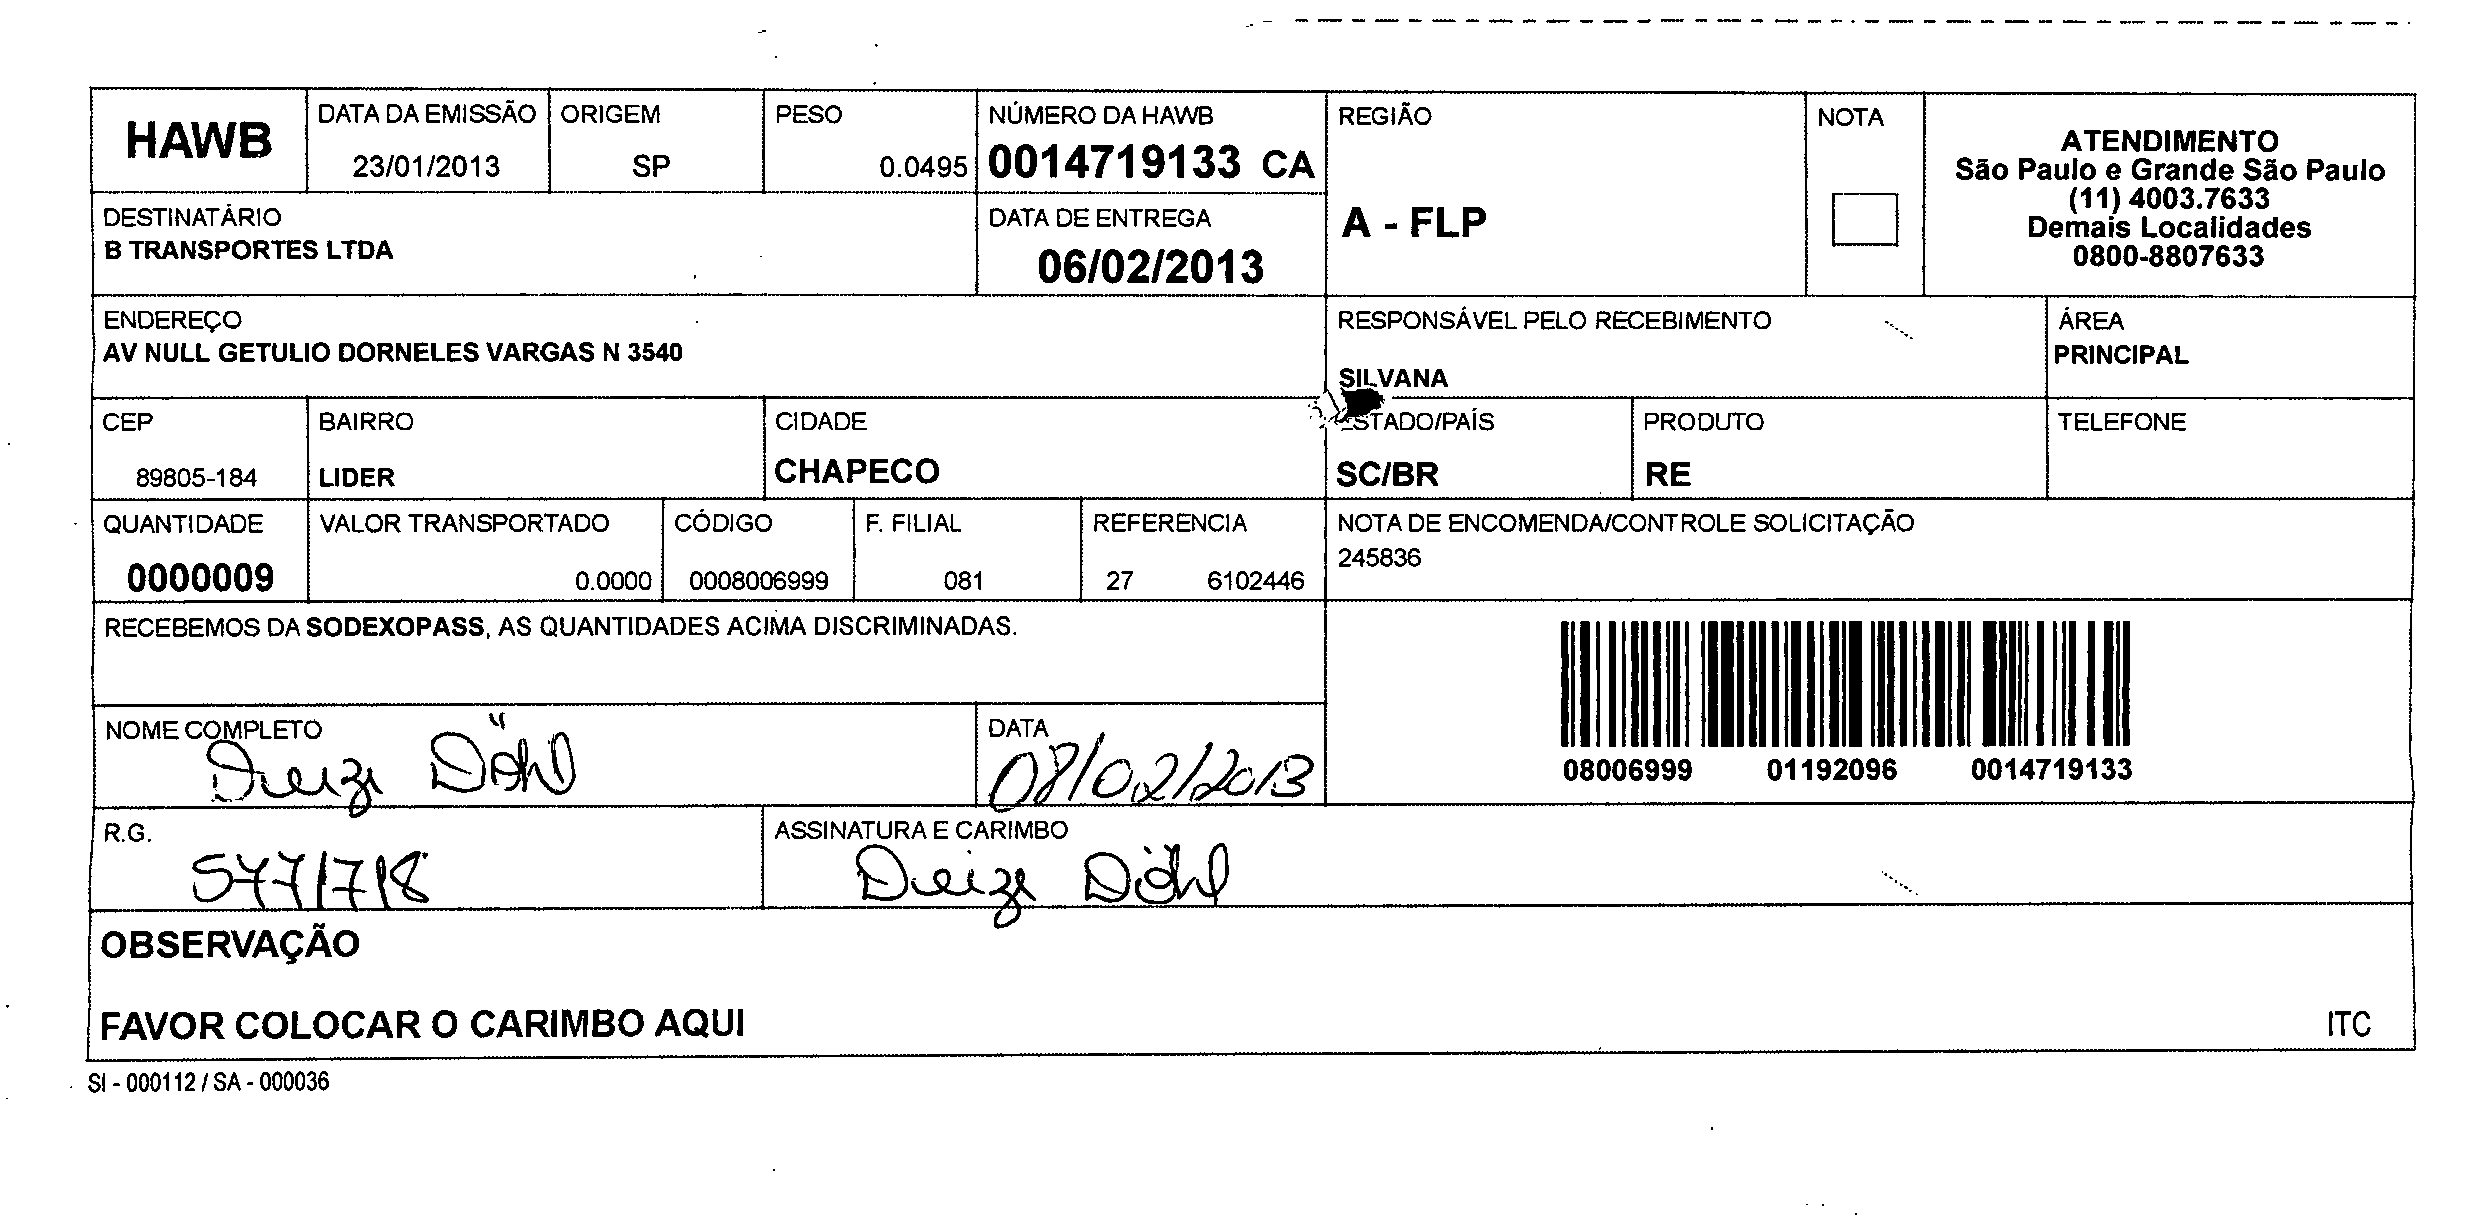 HAWB
DATA DA EMISSÃO
23/01/2013
ORIGEM
SP
PESO
0.0495
NÚMERO DA HAWB
0014719133 CA
REGIÃO
A - FLP
NOTA
ATENDIMENTO
São Paulo e Grande São Paulo
(11) 4003.7633
Demais Localidades
0800-8807633
DESTINATÁRIO
B TRANSPORTES LTDA
DATA DE ENTREGA
06/02/2013
ENDEREÇO
AV NULL GETULIO DORNELES VARGAS N 3540
RESPONSÁVEL PELO RECEBIMENTO
SILVANA
ÁREA
PRINCIPAL
CEP
89805-184
BAIRRO
LIDER
CIDADE
CHAPECO
ESTADO/PAÍS
SC/BR
PRODUTO
RE
TELEFONE
QUANTIDADE
0000009
VALOR TRANSPORTADO
0.0000
CÓDIGO
0008006999
F. FILIAL
081
REFERENCIA
27 6102446
NOTA DE ENCOMENDA/CONTROLE SOLICITAÇÃO
245836
RECEBEMOS DA SODEXOPASS, AS QUANTIDADES ACIMA DISCRIMINADAS.
08006999 01192096 0014719133
NOME COMPLETO
Deizi Döhl
DATA
08/02/2013
R.G.
5771718
ASSINATURA E CARIMBO
Deizi Döhl
OBSERVAÇÃO
FAVOR COLOCAR O CARIMBO AQUI
ITC
SI - 000112 / SA - 000036